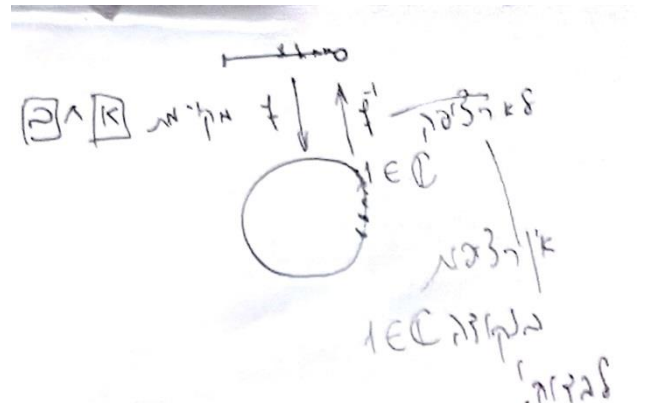 f מקיימת א ∧ ב
f⁻¹
לא רציפה
1 ∈ ℂ
אין רציפות
בנקודה 1 ∈ ℂ